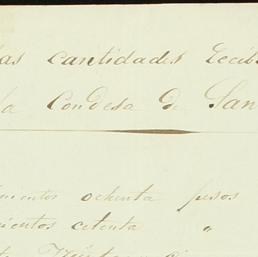 las cantidades recib
la Condesa de San
mientos ochenta pesos
mientos cetenta "